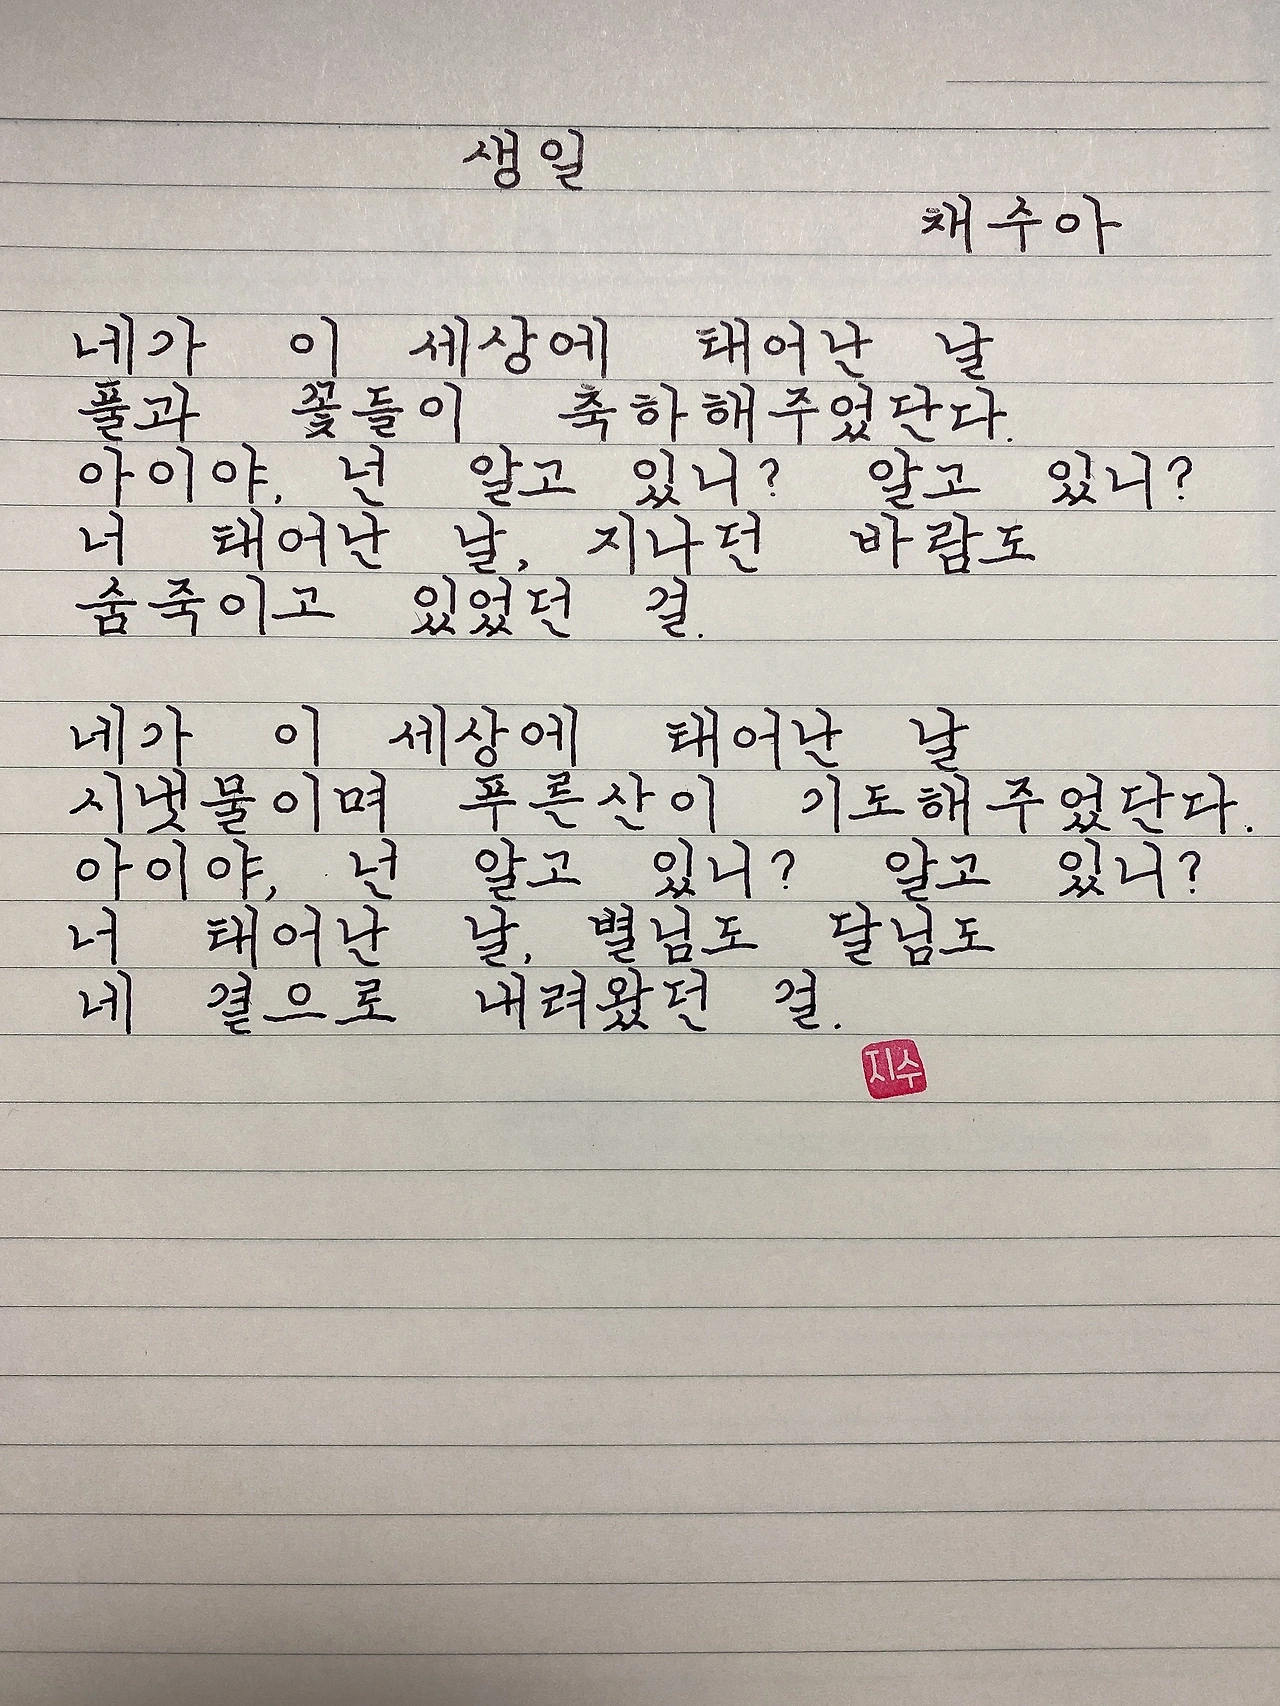 생일
채수아
네가 이 세상에 태어난 날
풀과 꽃들이 축하해주었단다.
아이야, 넌 알고 있니? 알고 있니?
너 태어난 날, 지나던 바람도
숨죽이고 있었던 걸.
네가 이 세상에 태어난 날
시냇물이며 푸른산이 기도해주었단다.
아이야, 넌 알고 있니? 알고 있니?
너 태어난 날, 별님도 달님도
네 곁으로 내려왔던 걸.
지수